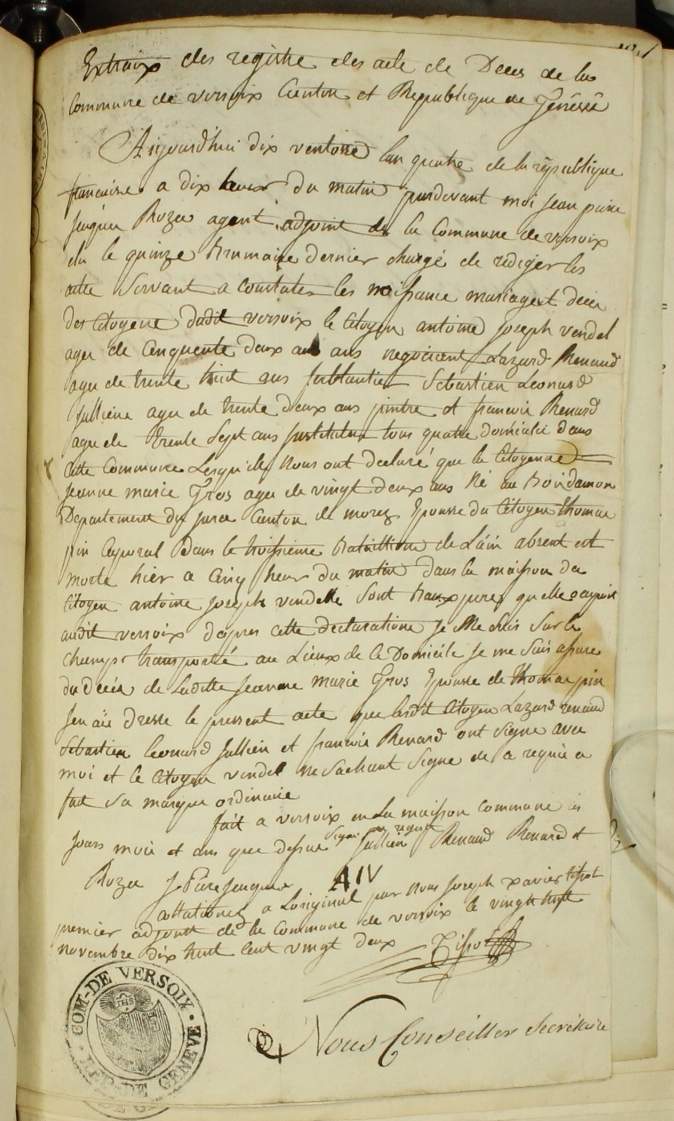 Extraix des registre des acte de Deces de la
Commune de versoix Canton et Republique de Genève
Aujourd'hui dix ventose lan quatre de la republique
francaise a dix heur du matin pardevant moi Jean pierre
Jenquer Rozer agent adjoint de la Commune de versoix
elu le quinze Brumaire dernier chargé de rediger les
acte Servant a Constater les naissance mariage et deces
des Citoyens dudit versoix le Citoyen antoine Joseph vendel
age de Cinquente deux ans negociant Lazard Renaud
age de trente huit ans Sebastien Leonard
Jullien age de trente deux ans pintre et francois Renard
age de trente Sept ans tous quatre domicilie dans
cette Commune Lesquels Nous ont declaré que la Citoyenne
Jeanne marie Gros age de vingt deux ans Né au Boidamon
Departement du Jura Canton de morez Epouse du Citoyen thomas
pin Caporal Dans le troisieme Bataillion de Lain absent est
morte hier a Cinq heur du matin dans la maison du
Citoyen antoine Joseph vendelle qu elle
audit versoix d'apres cette declaration Je me Suis Sur le
champ transporté au Lieux de ce Domicile Je me Suis assuré
du déces de Ladite Jeanne marie Gros Epouse de thomas pin
Jen aie dresse le present acte que ledit Citoyen Lazard renaud
Sebastien leonard Jullien et francois Renard ont Signe avec
moi et le Citoyen vendel ne Sachant Signe de ce requis a
fait Sa marque ordinaire
fait a versoix en la maison commune les
Jours mois et ans que dessus Signé au registre Jullien Renaud Renard et
Rozer J. Pierre Jenquer AIV
a Loriginal par Nous Joseph xavier tissot
premier adjoint de la Commune de versoix le vingt huit
novembre dix huit Cent vingt deux Tissot
COM-DE VERSOIX
REP-DE GENEVE
Nous Conseiller Secrétaire